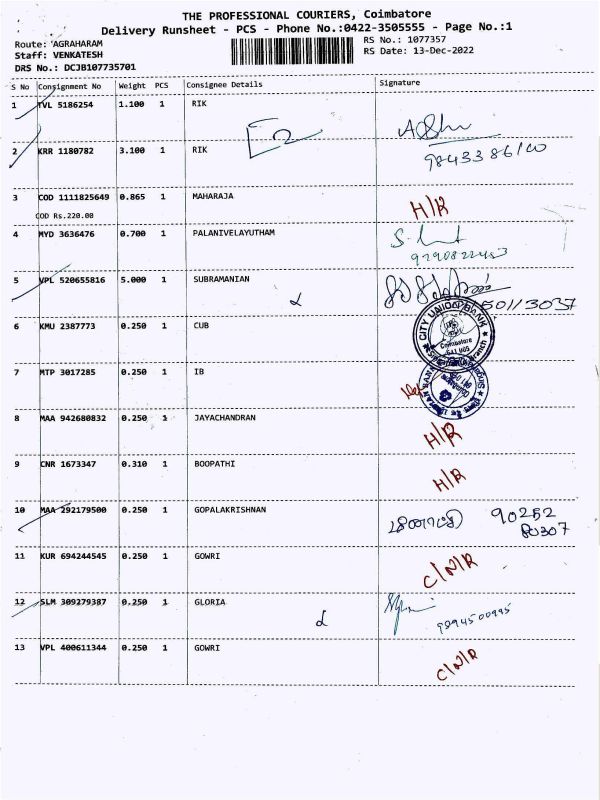 THE PROFESSIONAL COURIERS, Coimbatore
Delivery Runsheet - PCS - Phone No.:0422-3505555 - Page No.:1
Route: AGRAHARAM
RS No.: 1077357
Staff: VENKATESH
RS Date: 13-Dec-2022
DRS No.: DCJB107735701
S No Consignment No Weight PCS Consignee Details Signature
1 TVL 5186254 1.100 1 RIK
2 KRR 1180782 3.100 1 RIK
3 COD 1111825649 0.865 1 MAHARAJA H/R
COD Rs.220.00
4 MYD 3636476 0.700 1 PALANIVELAYUTHAM
5 VPL 520655816 5.000 1 SUBRAMANIAN
6 KMU 2387773 0.250 1 CUB
CITY UNION BANK
Coimbatore
641 005
7 MTP 3017285 0.250 1 IB
8 MAA 942680832 0.250 1 JAYACHANDRAN H/R
9 CNR 1673347 0.310 1 BOOPATHI H/R
10 MAA 292179500 0.250 1 GOPALAKRISHNAN 90252
80307
11 KUR 694244545 0.250 1 GOWRI C/N/R
12 SLM 309279387 0.250 1 GLORIA
13 VPL 400611344 0.250 1 GOWRI C/N/R